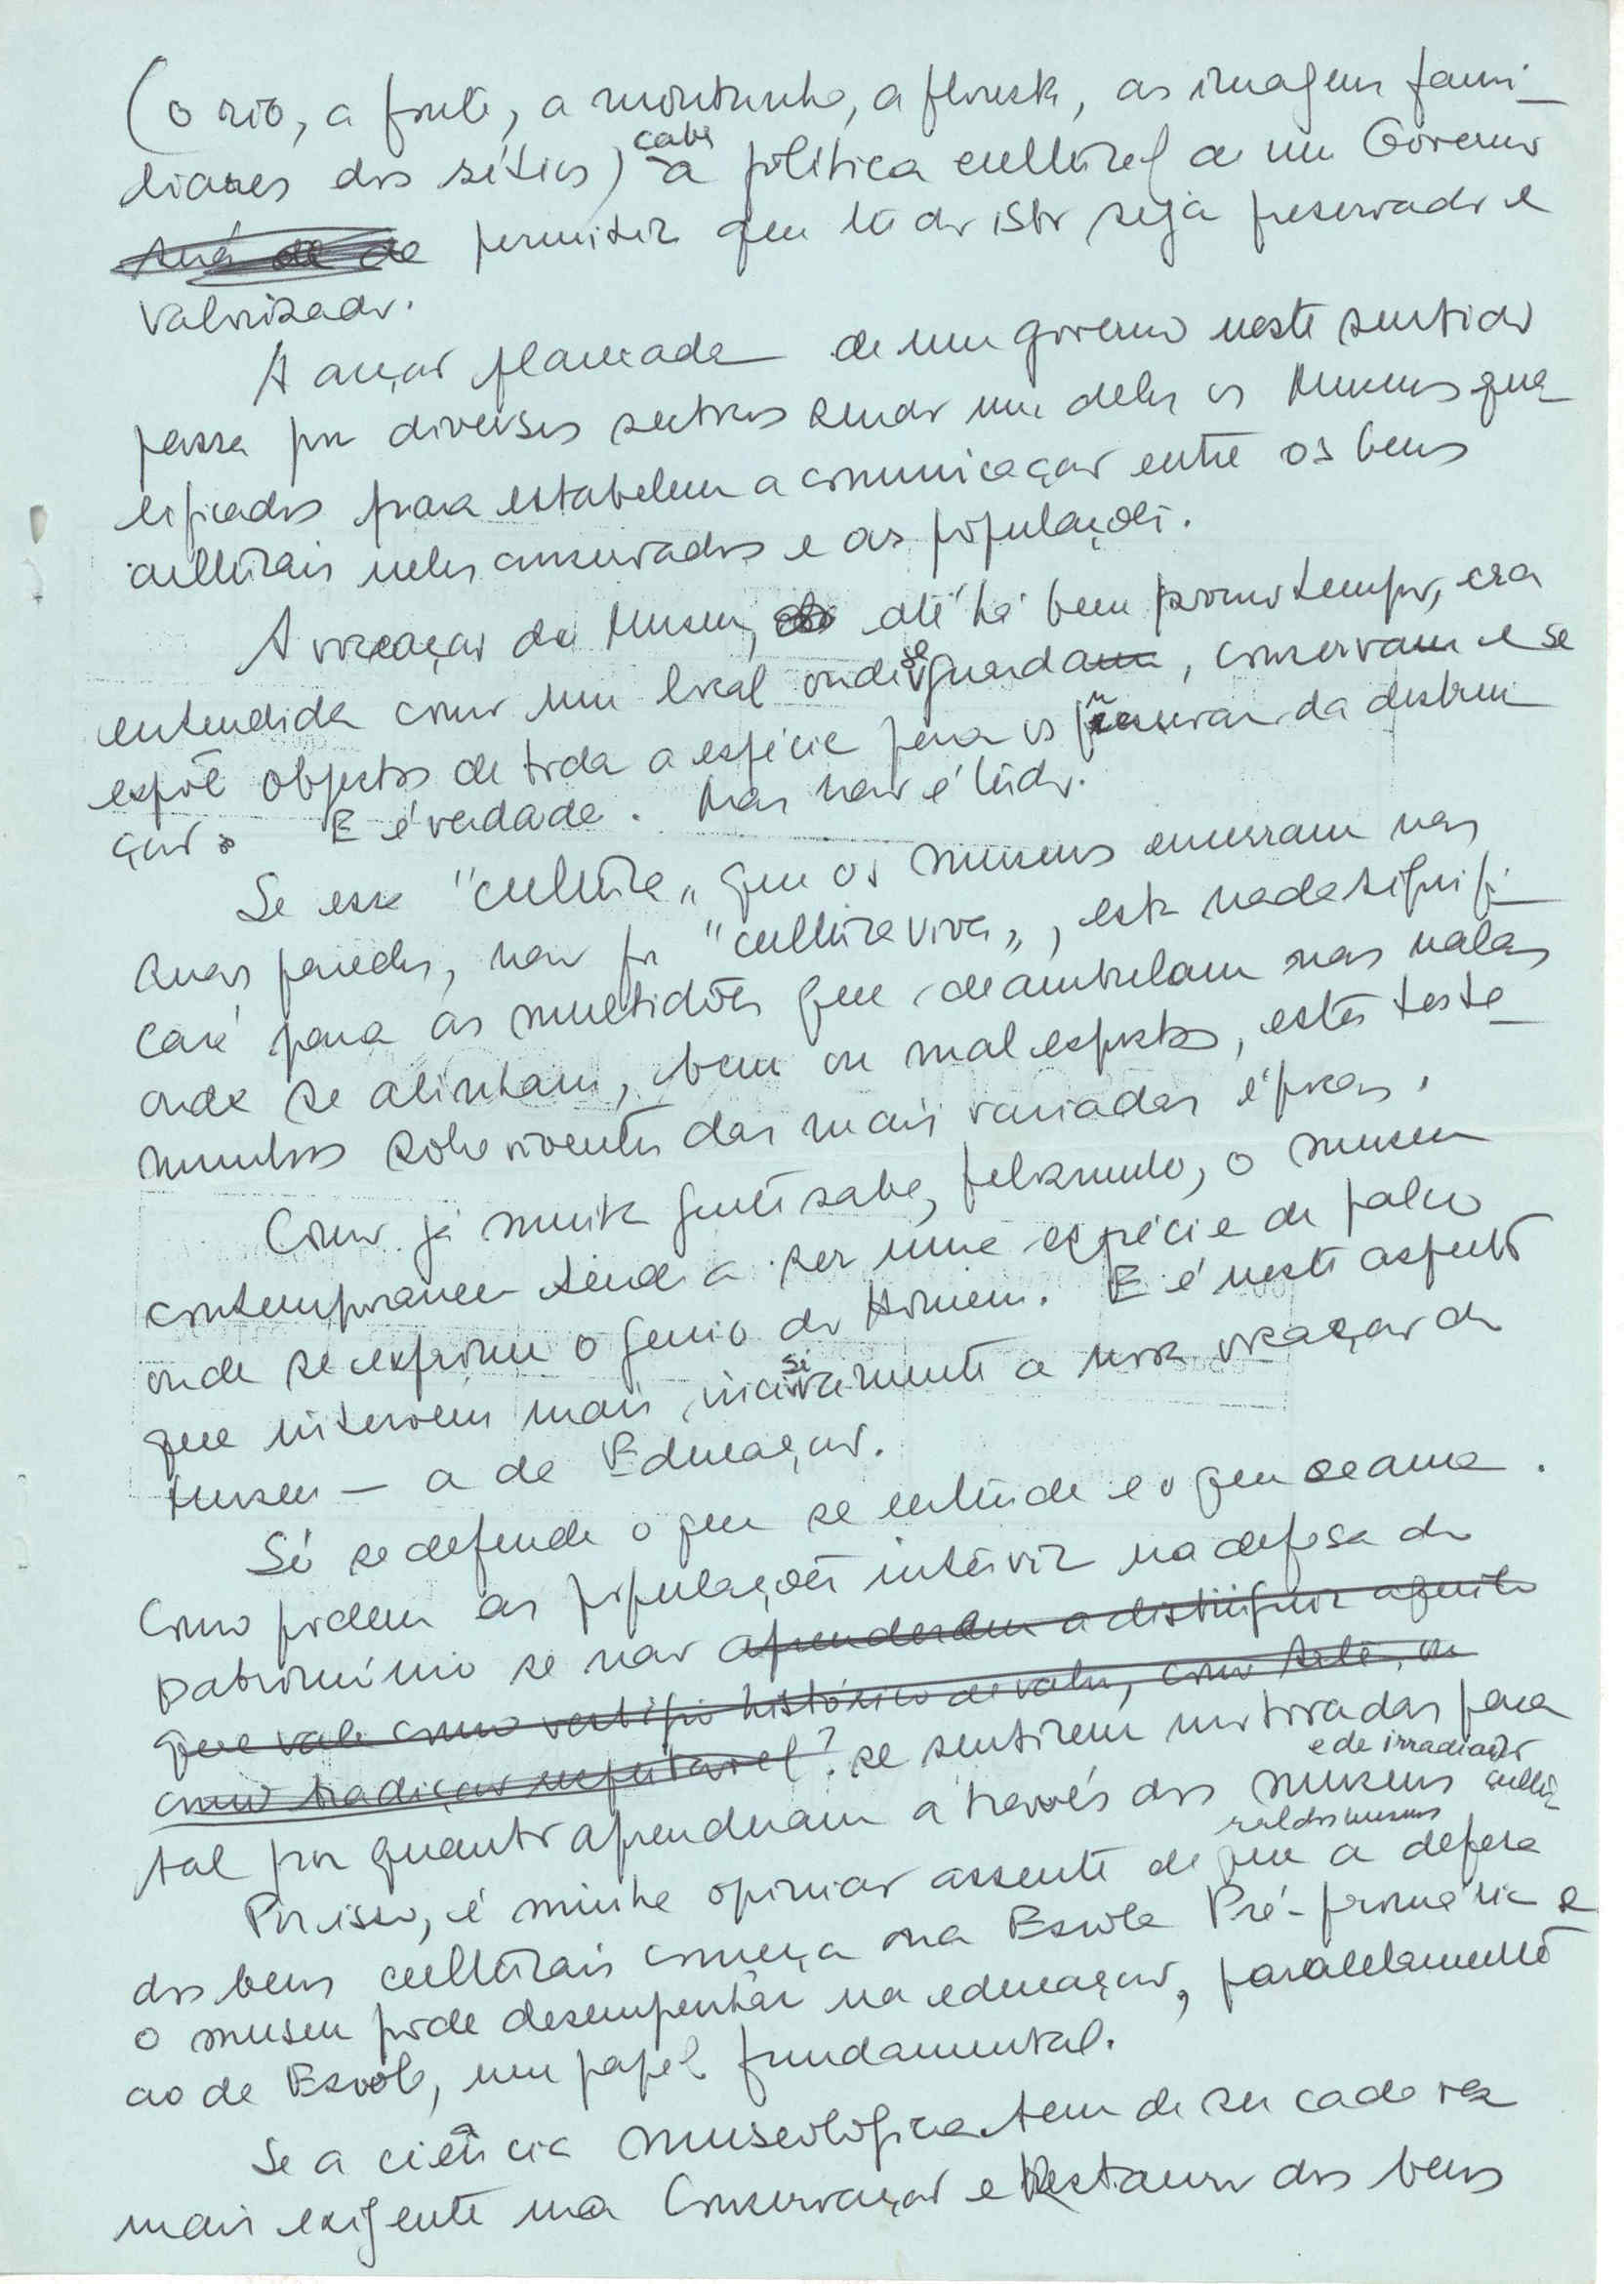 (o rio, a fonte, a montanha, a floresta, as imagens fami-
liares dos sítios) cabe à política cultural de um Governo
permitir que tudo isto seja preservado e
valorizado.
A acção planeada de um governo neste sentido
passa por diversos sectores sendo um deles os Museus qua
lificados para estabelecer a comunicação entre os bens
culturais neles conservados e as populações.
A vocação do Museu, até há bem pouco tempo, era
entendida como um local onde se guardam, conservam e se
expõe objectos de toda a espécie para os preservar da destrui
ção. E é verdade. Mas não é tudo.
Se essa "cultura" que os museus encerram nas
suas paredes, não for "cultura viva", esta nada signifi-
cará para as multidões que deambulam nas salas
onde se alinham, bem ou mal expostos, estes teste-
munhos sobreviventes das mais variadas épocas.
Como já muita gente sabe, felizmente, o museu
contemporaneo tende a ser uma espécie de palco
onde se exprime o genio do Homem. E é neste aspecto
que intervém mais incisivamente a nova vocação do
Museu — a de Educação.
Só se defende o que se entende e o que se ama.
Como podem as populações intervir na defesa do
património se não aprenderem a distinguir aquilo
que vale como vestígio histórico de valor, como Arte, ou
como tradição respeitavel? se sentirem motivadas para
tal por quanto aprenderam através dos museus e de irradiação cultu
ral dos museus
Por isso, é minha opinião assente de que a defesa
dos bens culturais começa na Escola Pré-primária e
o museu pode desempenhar na educação, paralelamente
ao da Escola, um papel fundamental.
Se a ciência museologica tem de ser cada vez
mais exigente na Conservação e Restauro dos bens